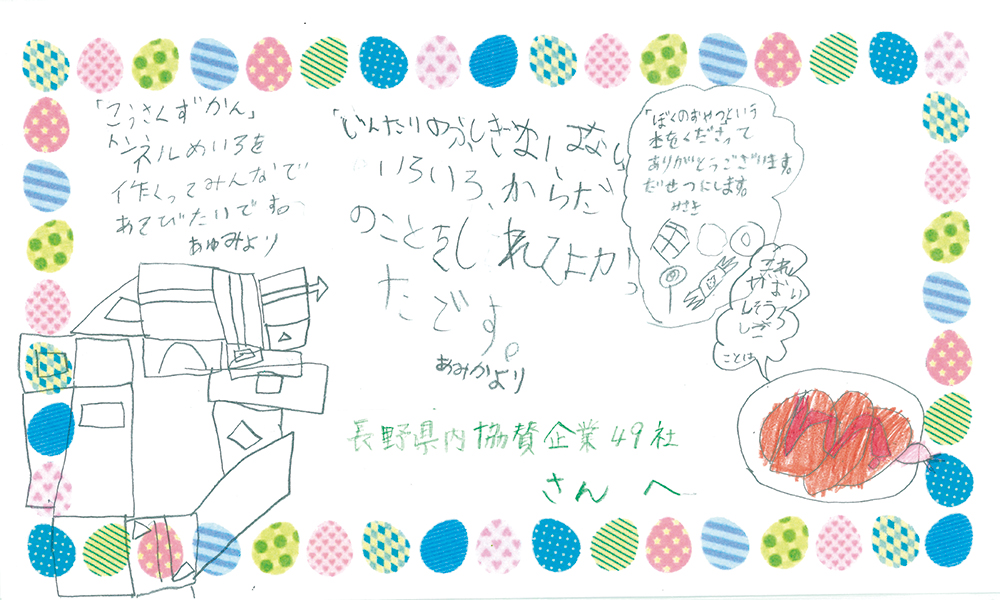 「こうさくずかん」
トンネルめいろを
作くってみんなで
あそびたいです。
あゆみより
いろいろ、からだ
のことをしれてよかっ
たです。
あみかより
「ぼくのおやつ」という
本をくださって
ありがとうございます。
だせつにします。
みさき
ことは
長野県内協賛企業49社
さんへ